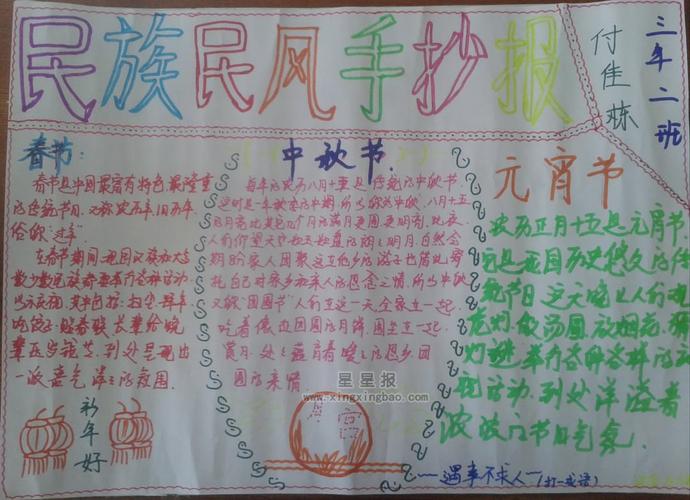 民族民风手抄报
三年二班
付佳栋
春节:
春节是中国最富有特色最隆重
的传统节日,又称农历年、旧历年
俗称“过年”
在春节期间,我国汉族和大
多数少数民族都要举行各种活动
以示庆祝,其中包括:扫尘、拜年
吃饺子、贴春联、长辈给晚
辈压岁钱等,到处呈现出
一派喜气洋洋的氛围
新年好
中秋节
每年的农历八月十五是传统的中秋节.
这时是一年秋季的中期,所以称为中秋.八月十五
的月亮比其它几个月的满月更圆,更明亮.此夜
人们仰望天空如玉如盘的朗朗明月,自然会
期盼家人团聚远在他乡的游子也借此寄
托自己对家乡和亲人的思念之情.所以中秋
又称“团圆节”人们在这一天全家在一起
吃着像血团圆的月饼,围坐在一起
赏月.处处
团圆的亲情
月宫
元宵节
农历正月十五是元宵节
它是我国历史悠久的传
统节日,这天晚上人们观
花灯、做汤圆、放烟花、猜
灯谜,举行各种各样的庆
祝活动,到处洋溢着
浓浓的节日气氛.
遇事不求人(打一成语)
星星报
www.xingxingbao.com